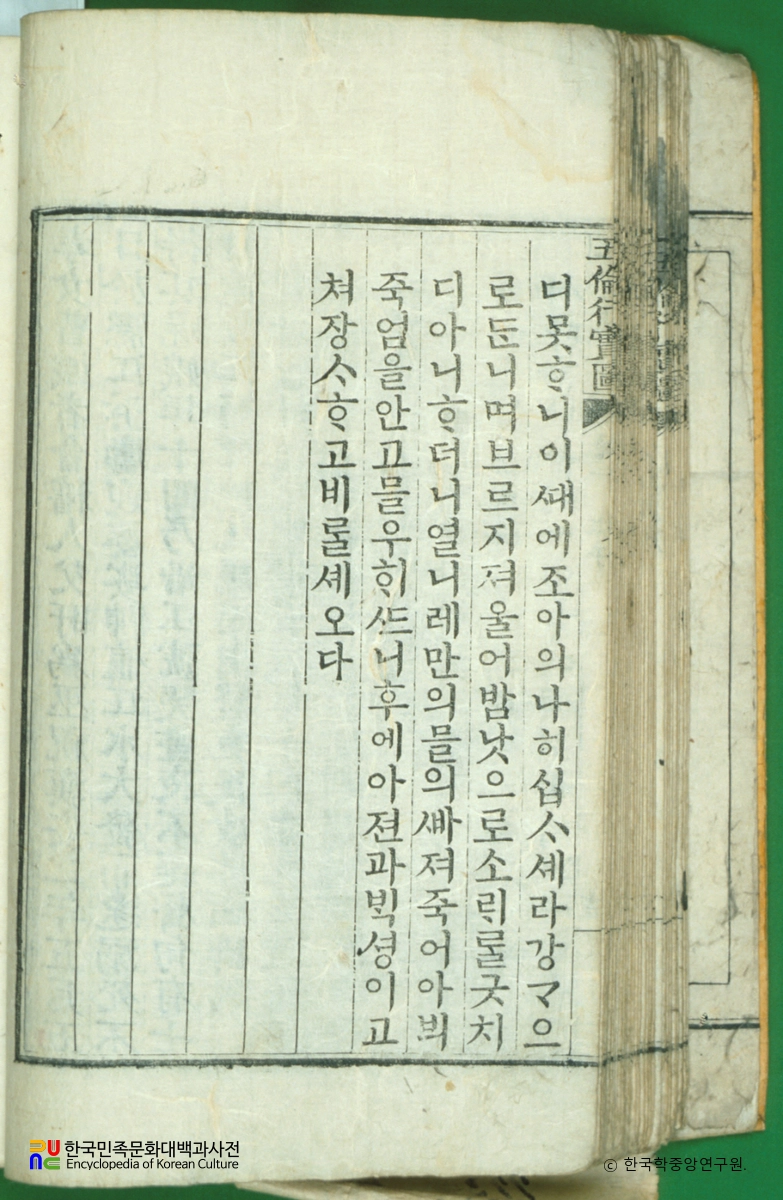 五倫行實圖
디못ᄒᆞ니이ᄯᅢ에조아의나히십ᄉᆞ셰라강ᄀᆞ으
로ᄃᆞᆫ니며브르지져울어밤낫으로소ᄅᆡᄅᆞᆯ긋치
디아니ᄒᆞ더니열니레만의믈의ᄲᅡ져죽어아븨
죽엄을안고믈우ᄒᆡᄯᅳ니후에아젼과ᄇᆡᆨ셩이고
쳐장ᄉᆞᄒᆞ고비ᄅᆞᆯ셰오다
한국민족문화대백과사전
Encyclopedia of Korean Culture
ⓒ 한국학중앙연구원.